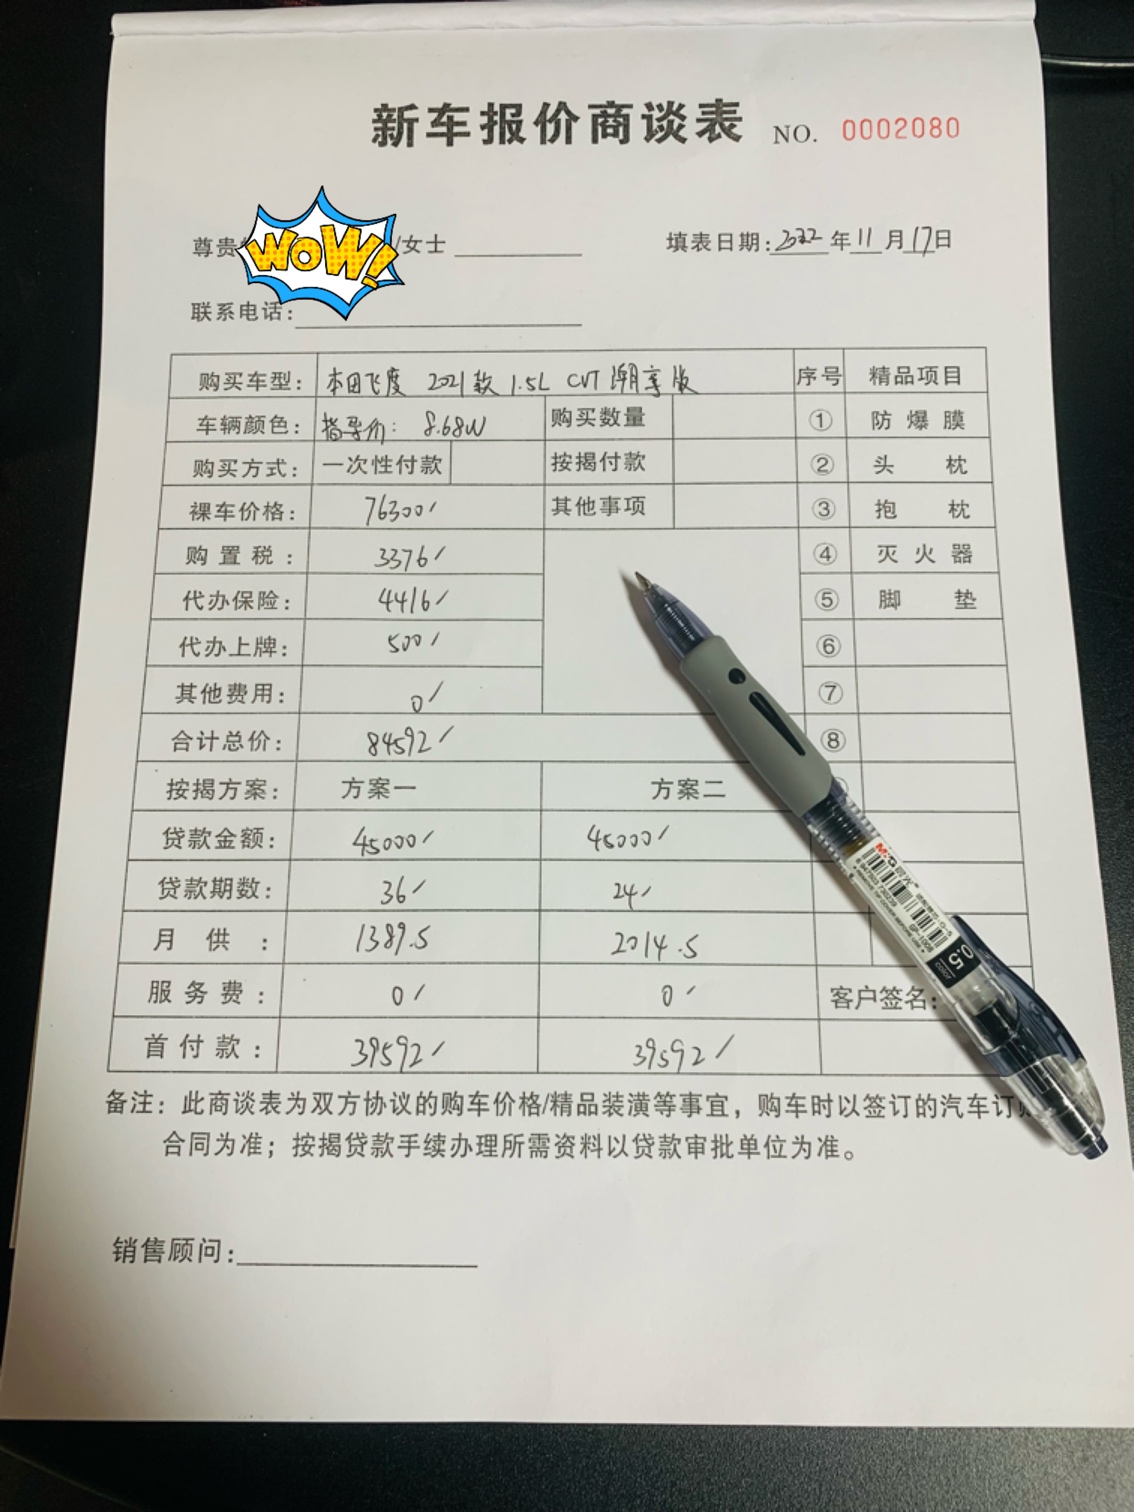 新车报价商谈表 NO. 0002080
尊贵 WOW! /女士 填表日期: 2022 年 11 月 17 日
联系电话:
购买车型: 本田飞度 2021款 1.5L CVT 潮享版 序号 精品项目
车辆颜色: 指导价: 8.68W 购买数量 ① 防爆膜
购买方式: 一次性付款 按揭付款 ② 头枕
裸车价格: 76300/ 其他事项 ③ 抱枕
购置税: 3376/ ④ 灭火器
代办保险: 4416/ ⑤ 脚垫
代办上牌: 500/ ⑥
其他费用: 0/ ⑦
合计总价: 84592/ ⑧
按揭方案: 方案一 方案二
贷款金额: 45000/ 45000/
贷款期数: 36/ 24/
月供: 1389.5 2014.5
服务费: 0/ 0/ 客户签名:
首付款: 39592/ 39592/
备注: 此商谈表为双方协议的购车价格/精品装潢等事宜，购车时以签订的汽车订
合同为准；按揭贷款手续办理所需资料以贷款审批单位为准。
销售顾问:
M&G 晨光
0.5